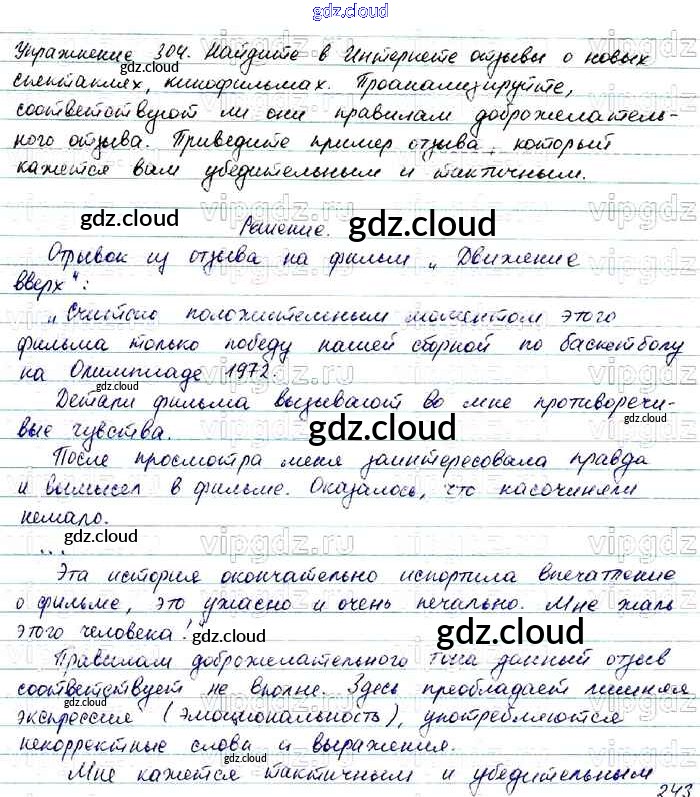 gdz.cloud
Упражнение 304. Найдите в Интернете отзывы о новых
спектаклях, кинофильмах. Проанализируйте,
соответствуют ли они правилам доброжелатель-
ного отзыва. Приведите пример отзыва, который
кажется вам убедительным и тактичным.
Решение.
Отрывок из отзыва на фильм „Движение
вверх":
„Считаю положительным моментом этого
фильма только победу нашей сборной по баскетболу
на Олимпиаде 1972.
Детали фильма вызывают во мне противоречи-
вые чувства.
После просмотра меня заинтересовала правда
и вымысел в фильме. Оказалось, что насочиняли
немало.
...
Эта история окончательно испортила впечатление
о фильме, это ужасно и очень печально. Мне жаль
этого человека!"
Правилам доброжелательного тона данный отзыв
соответствует не вполне. Здесь преобладает лишняя
экспрессия (эмоциональность), употребляются
некорректные слова и выражения.
Мне кажется тактичным и убедительным
243